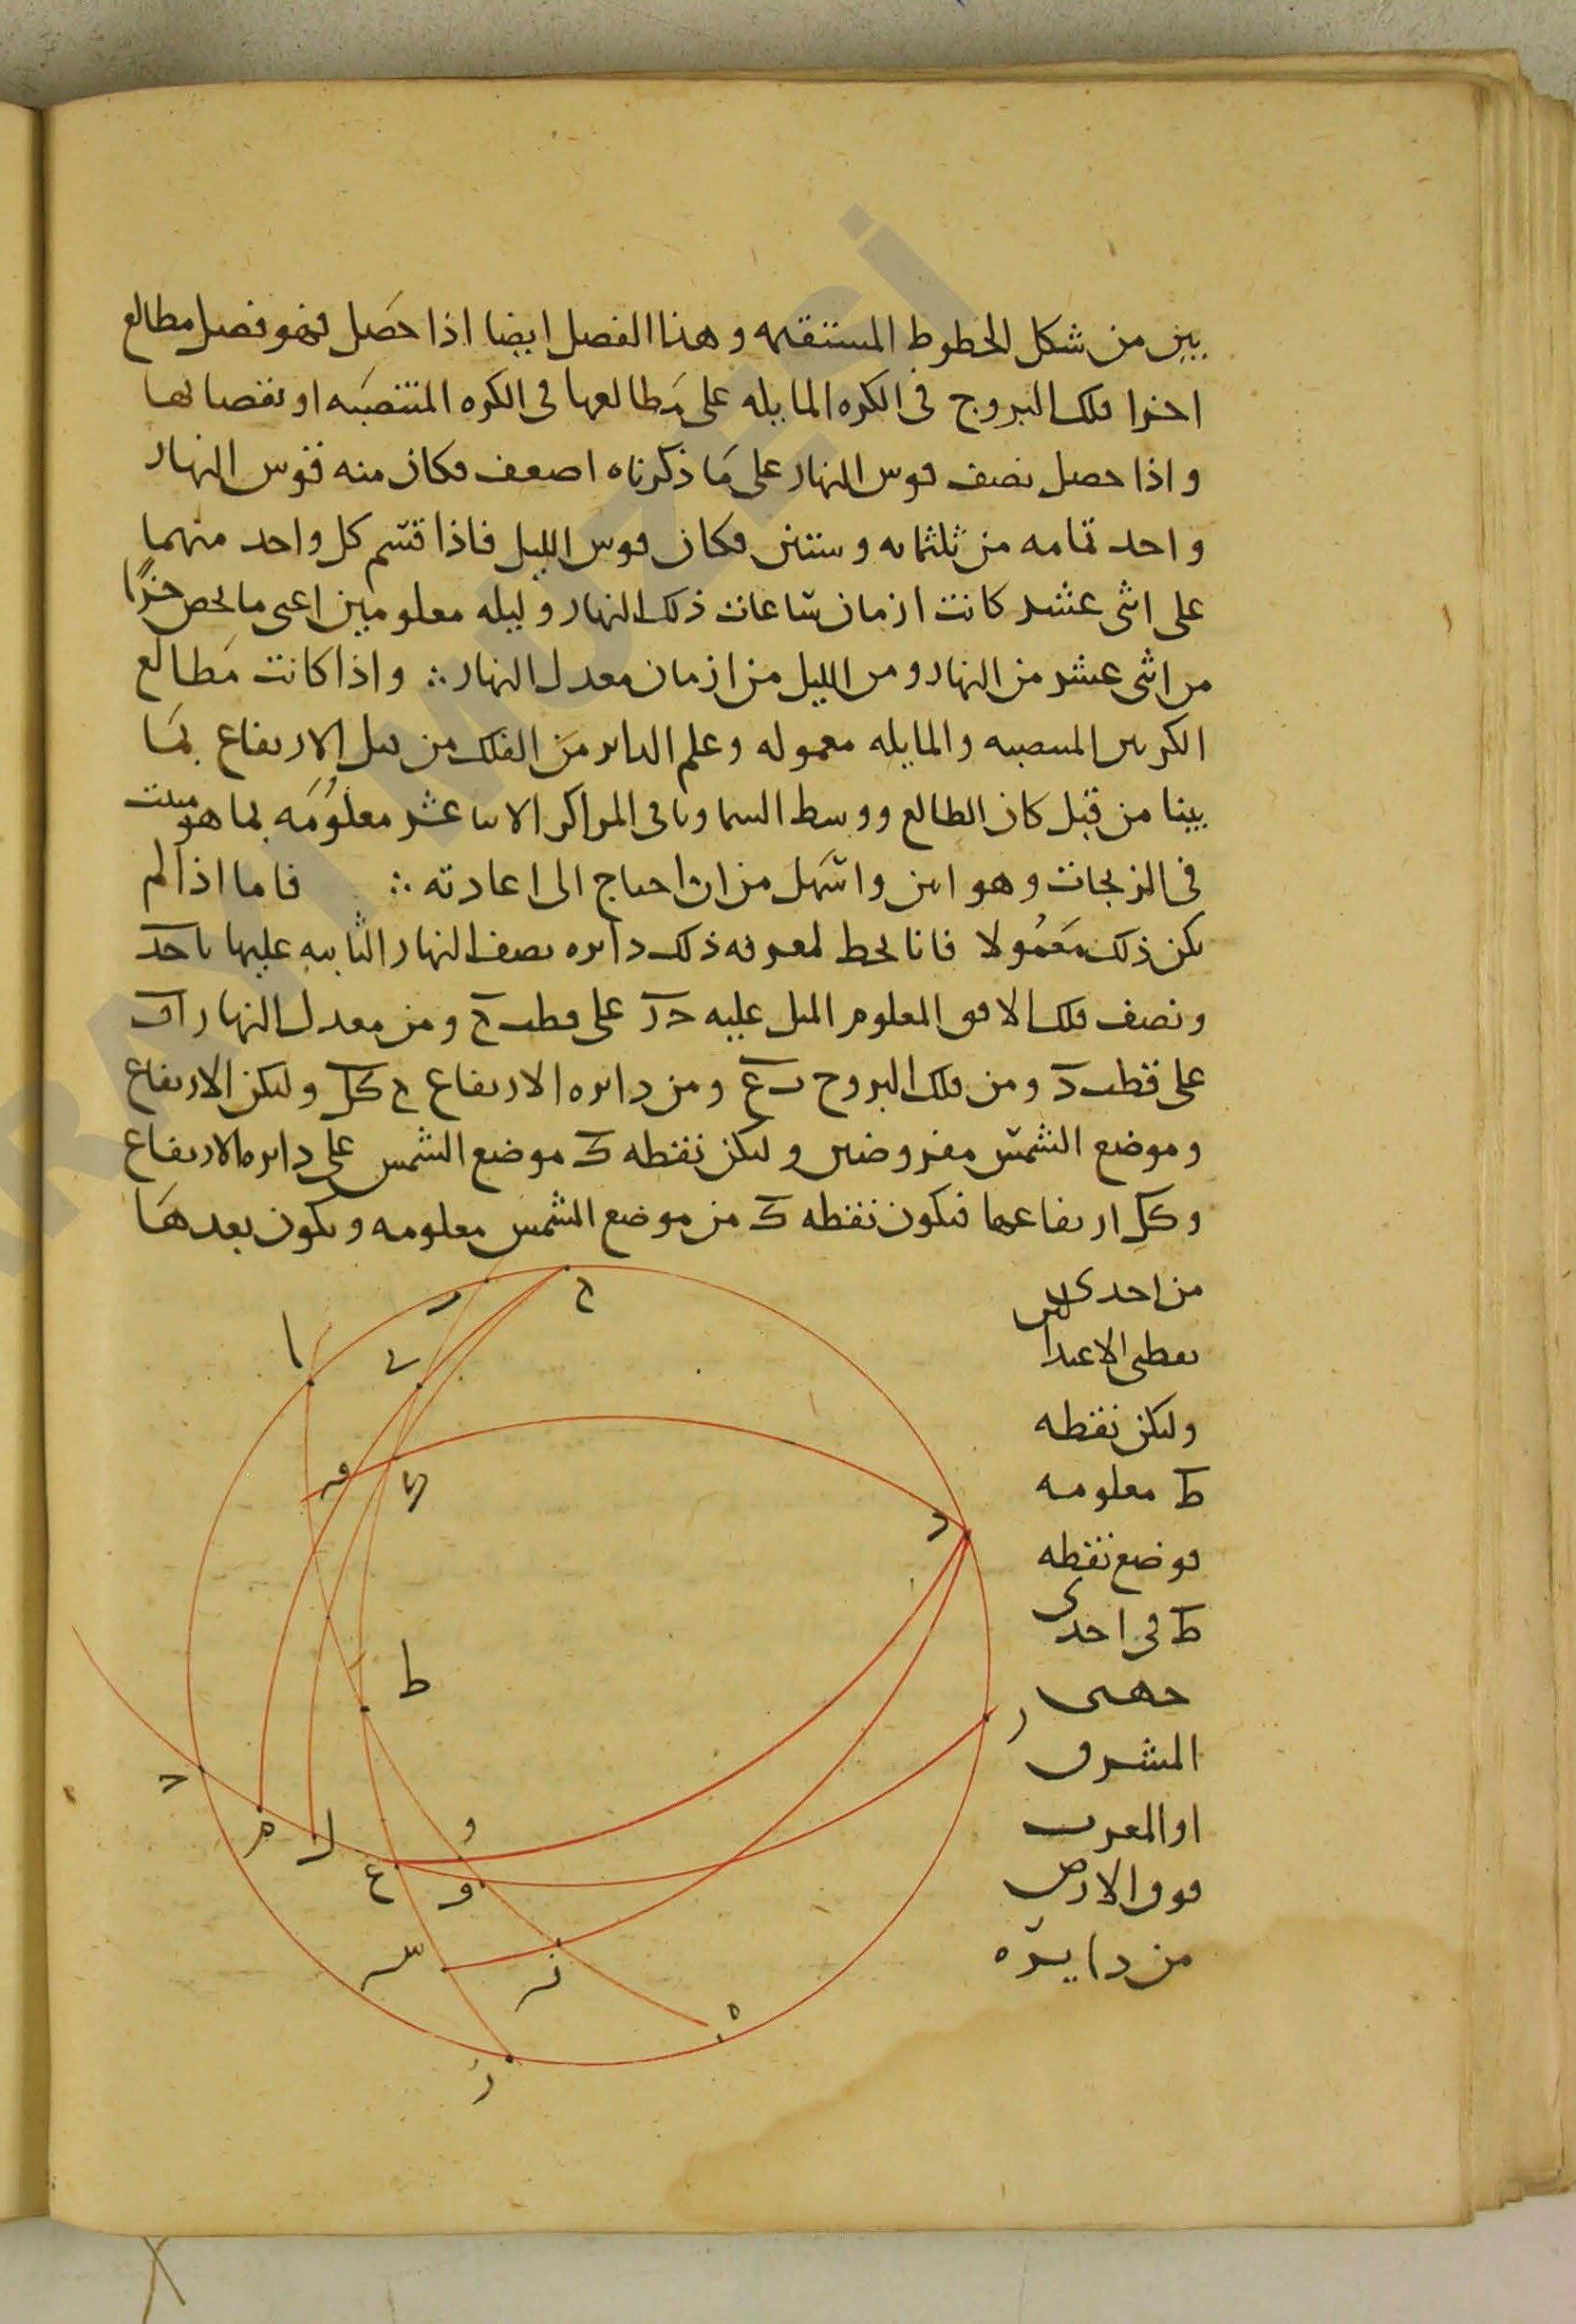 بين من شكل الخطوط المستقيمه وهذا الفصل ايضا اذا حصل فهو فصل مطالع
اجزا فلك البروج فى الكره المايله على مطالعها فى الكره المنتصبه او نقصانها
واذا حصل نصف قوس النهار على ما ذكرناه اضعف فكان منه قوس النهار
واخذ تمامه من ثلثمايه وستين فكان قوس الليل فاذا قسم كل واحد منهما
على اثنى عشر كانت ازمان ساعات ذلك النهار وليله معلومين اعنى ما يخص جزًا
من اثنى عشر من النهار ومن الليل من ازمان معدل النهار ؞ واذا كانت مطالع
الكرتين المنتصبه والمايله معموله وعلم الداير من الفلك من قبل الارتفاع بما
بينا من قبل كان الطالع ووسط السما وباقى المراكز الاثنا عشر معلومه بما هو مثبت
فى الزيجات وهو ابين واسهل من ان احتاج الى اعادته ؞ فاما اذا لم
يكن ذلك معمولا فانا نخط لمعرفه ذلك دايره نصف النهار الثابيه عليها احد
ونصف فلك الافق المعلوم الميل عليه حر على قطب ح ومن معدل النهار اف
على قطب د ومن فلك البروج ىع ومن دايره الارتفاع ح كل وليكن الارتفاع
وموضع الشمس مفروضين ولتكن نقطه ك موضع الشمس على دايره الارتفاع
وكل ارتفاعها فتكون نقطه ك من موضع الشمس معلومه ويكون بعدها
من احدى
نقطتى الاعتدالين
ولتكن نقطه
ط معلومه
فوضع نقطه
ط فى احدى
جهتى
المشرق
او المغرب
فوق الارض
من دايره
ح
ا
د
ط
ر
م
ل
ع
و
و
ه
ز
RAYI MÜZESİ